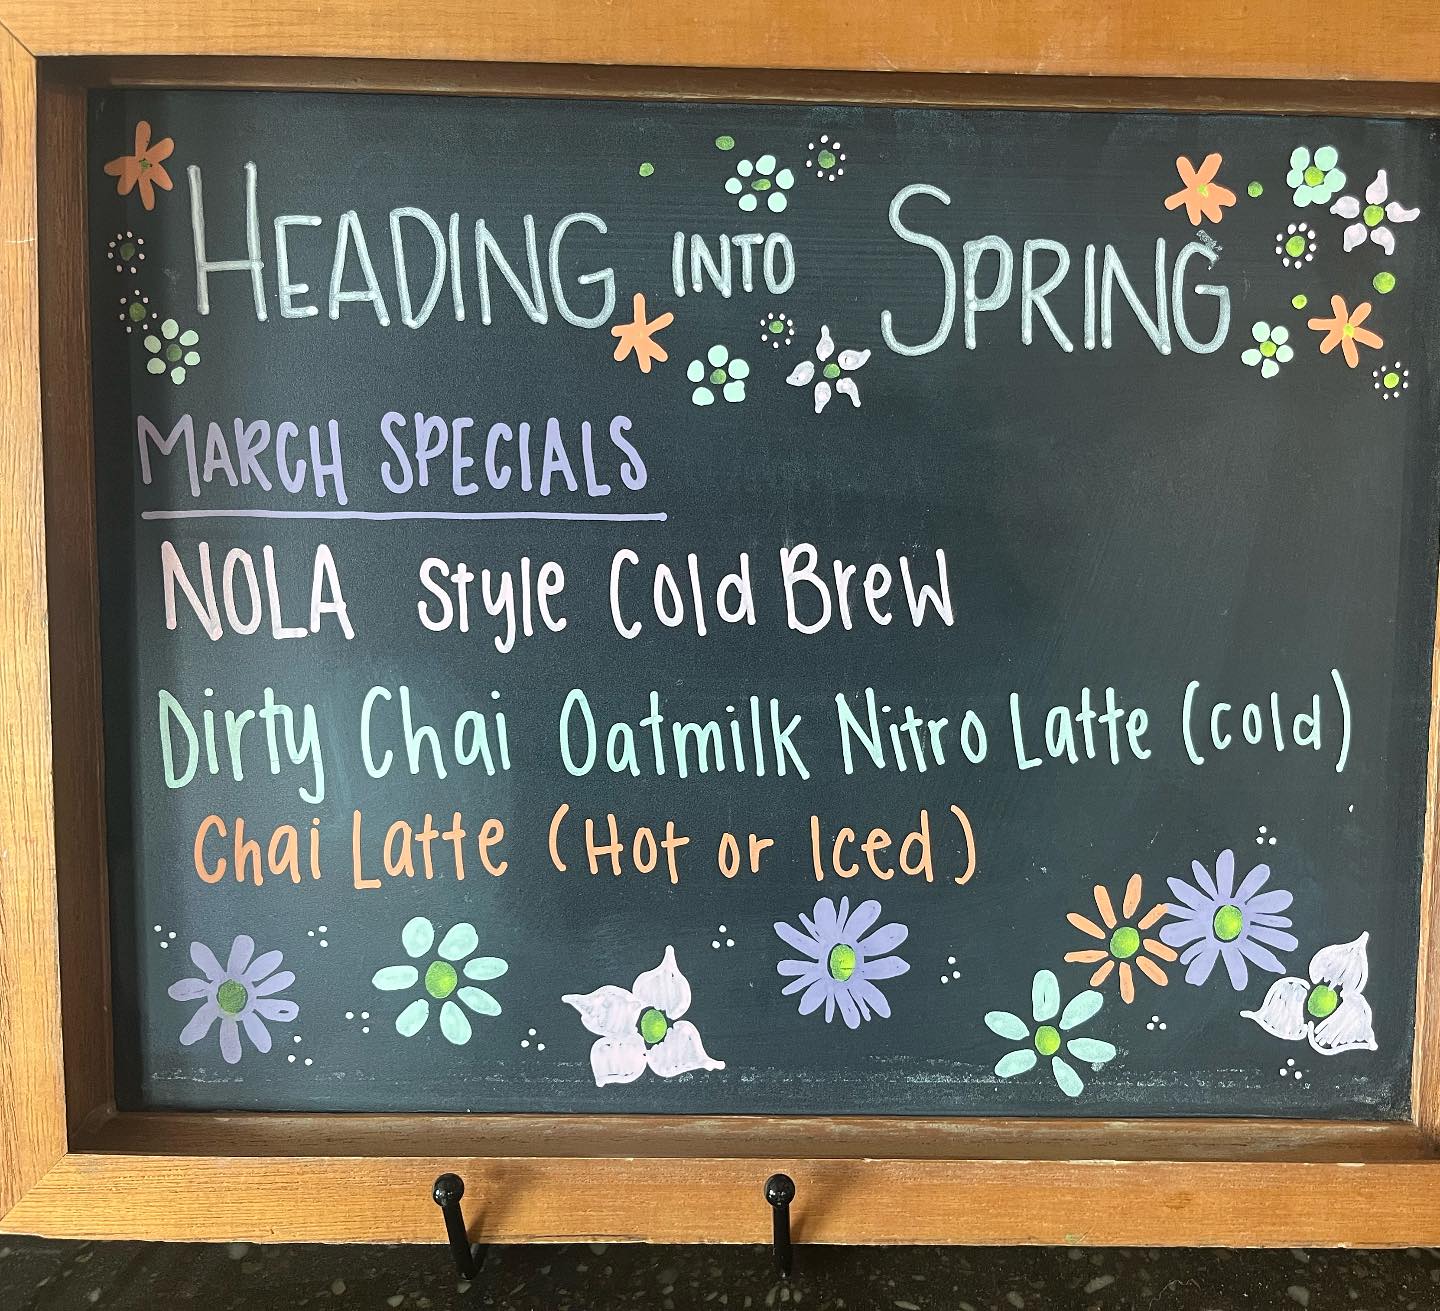 HEADING INTO SPRING
MARCH SPECIALS
NOLA Style Cold Brew
Dirty Chai Oatmilk Nitro Latte (cold)
Chai Latte (Hot or Iced)